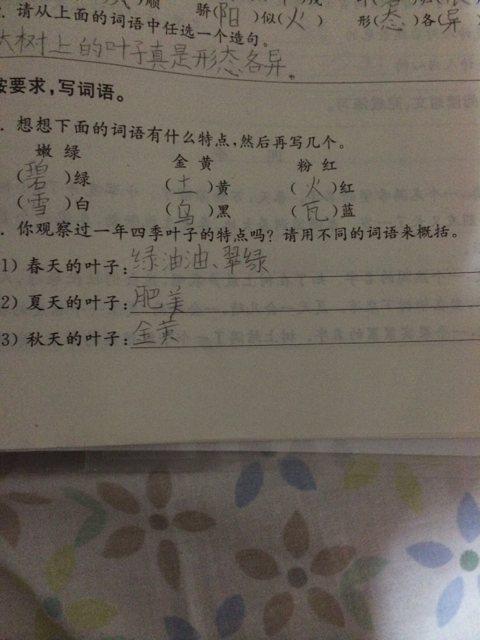 顺 骄(阳)似(火) 形(态)各(异)
. 请从上面的词语中任选一个造句。
大树上的叶子真是形态各异。
按要求,写词语。
. 想想下面的词语有什么特点,然后再写几个。
嫩 绿 金 黄 粉 红
(碧)绿 (土)黄 (火)红
(雪)白 (乌)黑 (瓦)蓝
. 你观察过一年四季叶子的特点吗? 请用不同的词语来概括。
1) 春天的叶子:绿油油、翠绿
2) 夏天的叶子:肥美
3) 秋天的叶子:金黄